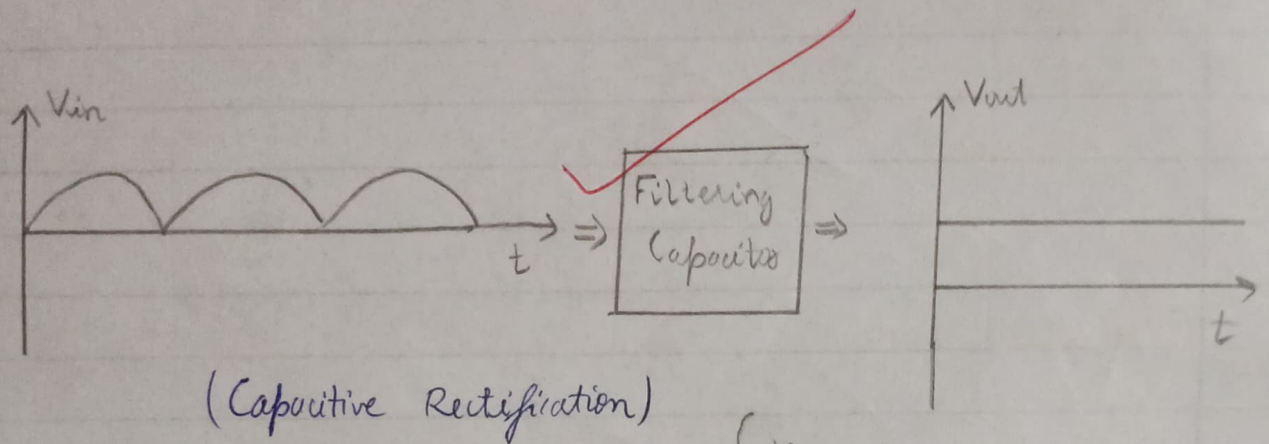 Vin
t
⇒
Filtering
Capacitor
⇒
Vout
t
(Capacitive Rectification)